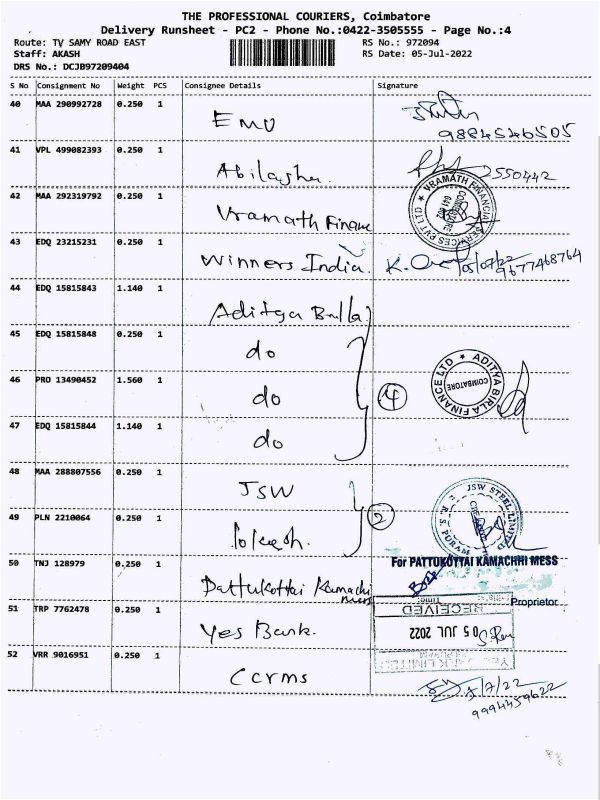 THE PROFESSIONAL COURIERS, Coimbatore
Delivery Runsheet - PC2 - Phone No.:0422-3505555 - Page No.:4
Route: TV SAMY ROAD EAST
RS No.: 972094
Staff: AKASH
RS Date: 05-Jul-2022
DRS No.: DCJB97209404
S No Consignment No Weight PCS Consignee Details Signature
40 MAA 290992728 0.250 1 EMU
9884546505
41 VPL 499082393 0.250 1 Abilasha. 2550442
42 MAA 292319792 0.250 1 Vramath Finance
VRAMATH FINANCIAL SERVICES PVT LTD
COIMBATORE 641 002
43 EDQ 23215231 0.250 1 Winners India. 05/07/22
9677468764
44 EDQ 15815843 1.140 1 Aditya Birla
45 EDQ 15815848 0.250 1 do
46 PRO 13490452 1.560 1 do 4
ADITYA BIRLA FINANCE LTD
COIMBATORE
47 EDQ 15815844 1.140 1 do
48 MAA 288807556 0.250 1 JSW
JSW STEEL LIMITED
R. S. PURAM
49 PLN 2210064 0.250 1 lokesh. 2
50 TNJ 128979 0.250 1 Pattukottai Kamachi mess
For PATTUKOTTAI KAMACHHI MESS
Proprietor
51 TRP 7762478 0.250 1 Yes Bank.
RECEIVED
05 JUL 2022
YES BANK LIMITED
52 VRR 9016951 0.250 1 Ccrms
5/7/22
9994459622